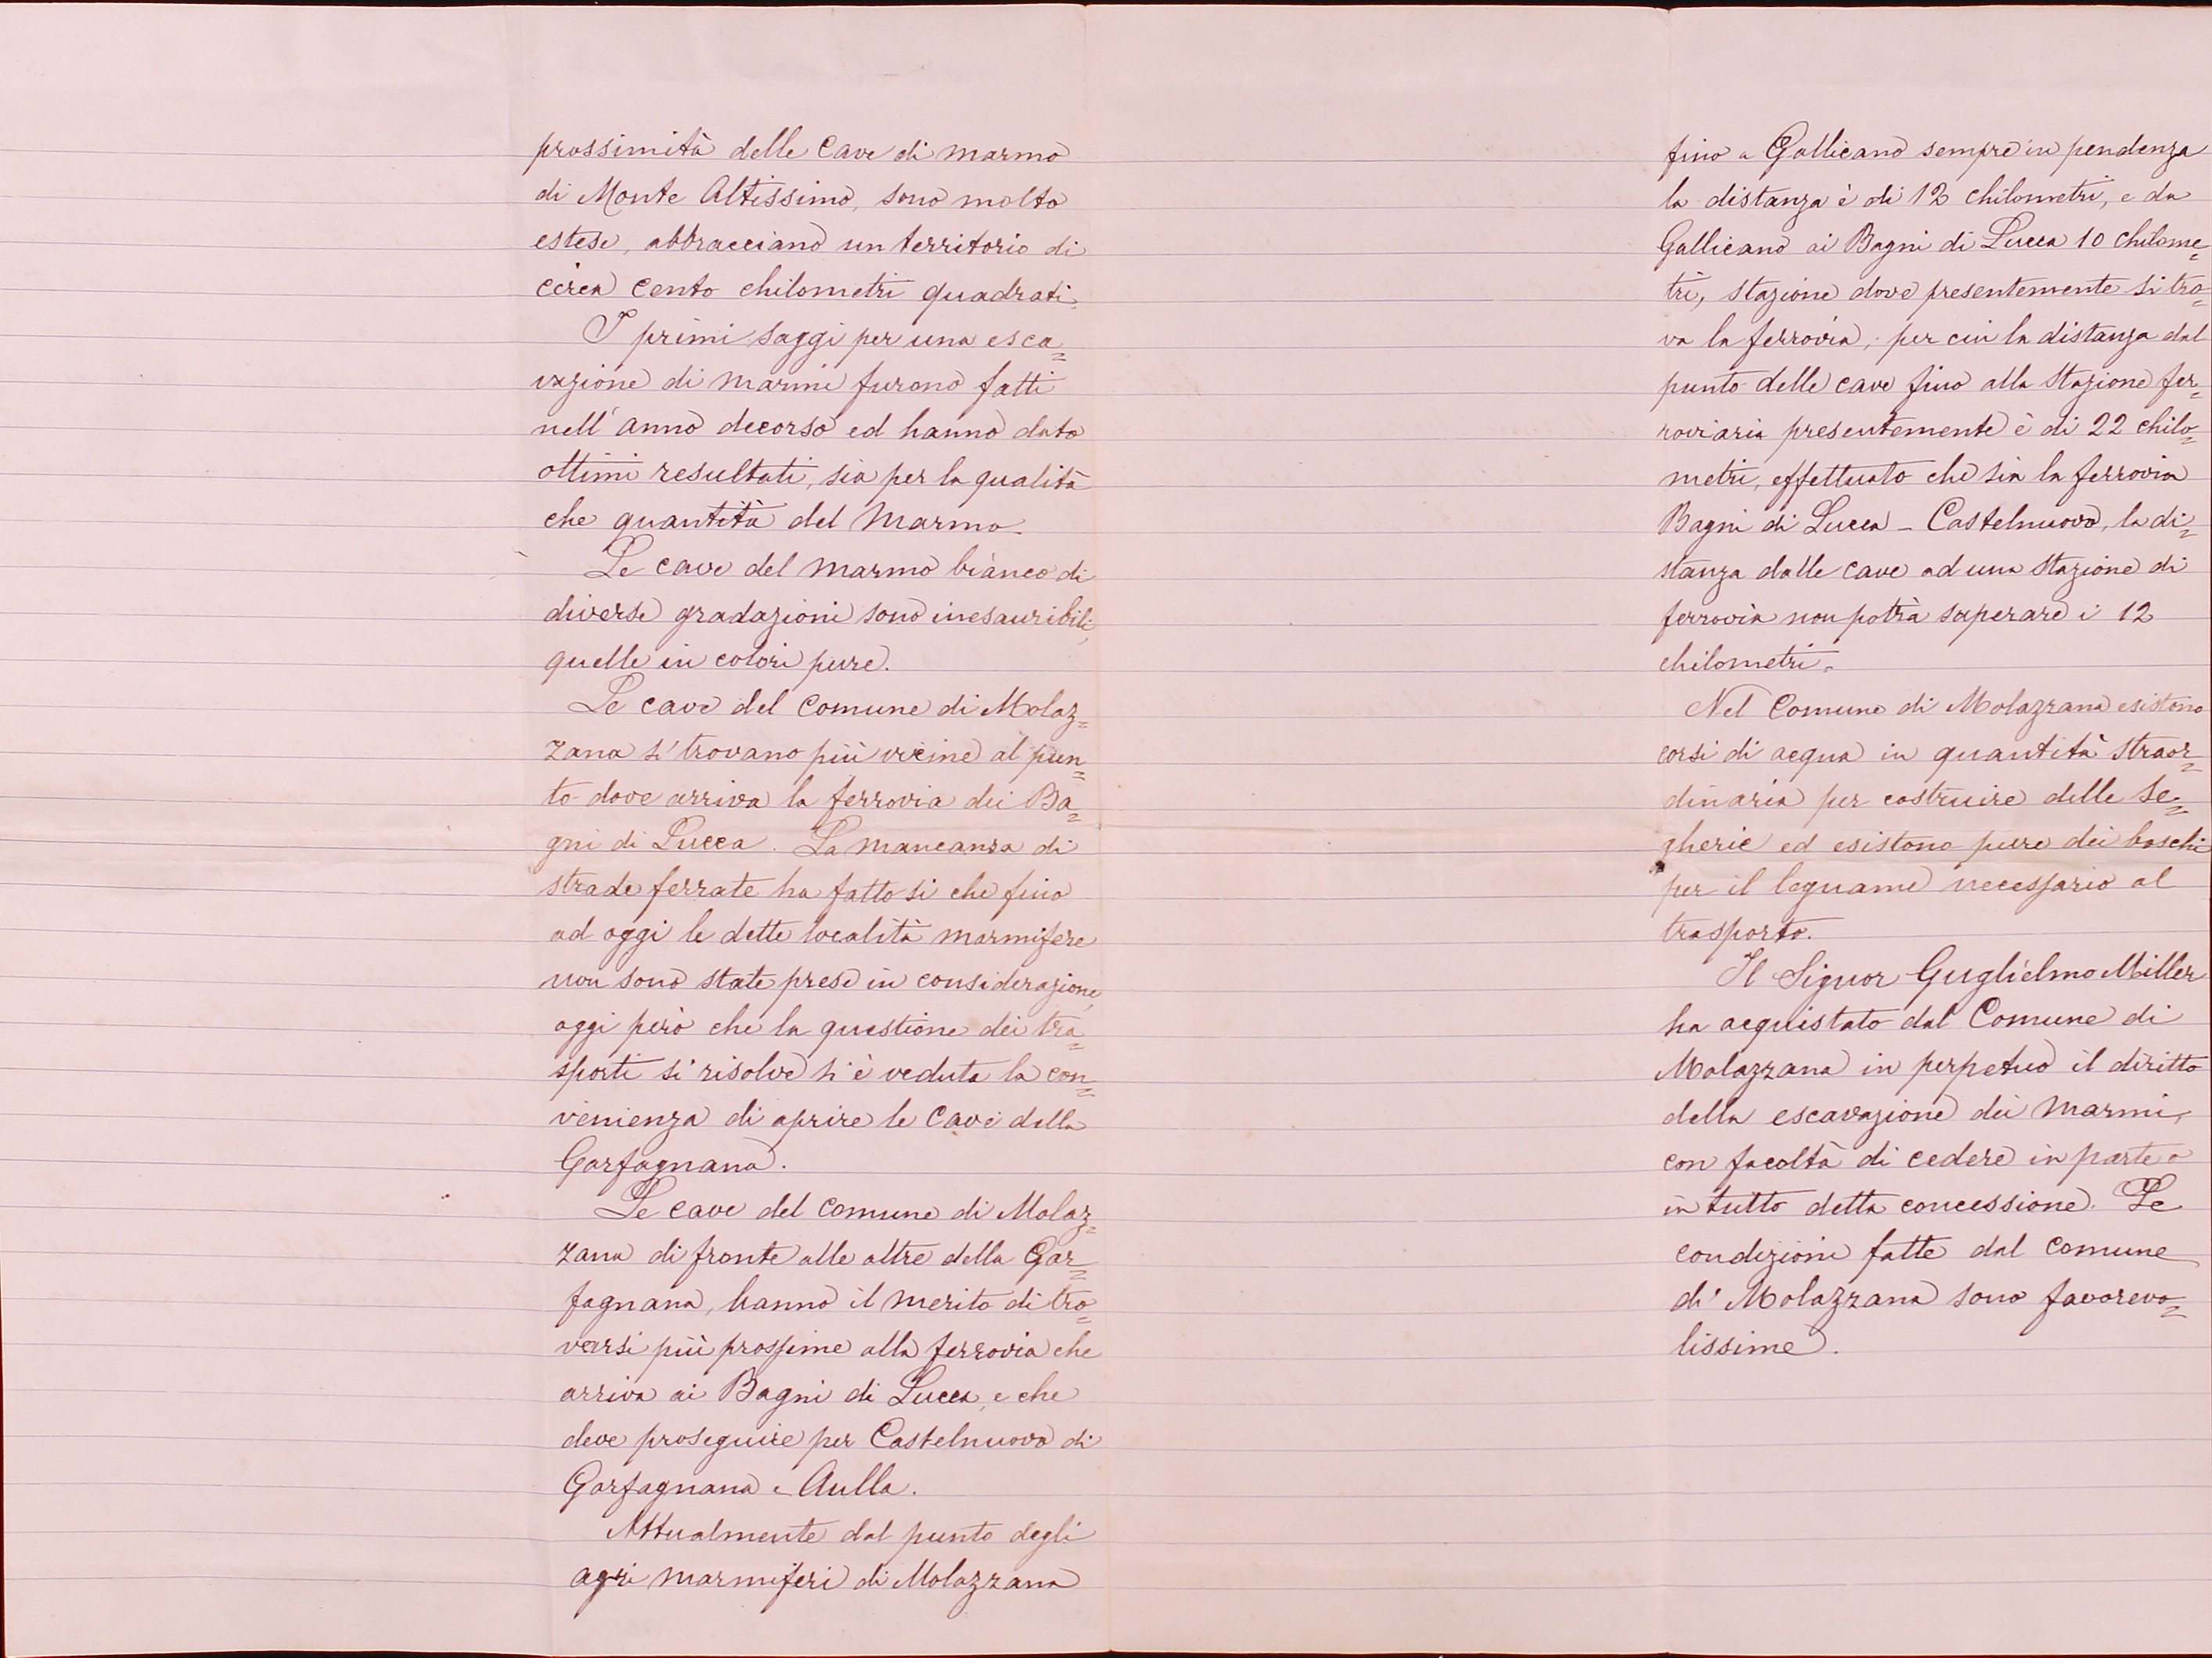 prossimità delle Cave di marmo
di Monte Altissimo, sono molto
estese, abbracciano un territorio di
circa cento chilometri quadrati.
I primi saggi per una esca=
vazione di marmi furono fatti
nell'anno decorso ed hanno dato
ottimi resultati, sia per la qualità
che quantità del Marmo.
Le cave del marmo bianco di
diverse gradazioni sono inesauribili,
quelle in colori pure.
Le cave del Comune di Molaz=
zana si trovano più vicine al pun=
to dove arriva la ferrovia dei Ba=
gni di Lucca. La mancanza di
strade ferrate ha fatto si che fino
ad oggi le dette località marmifere
non sono state prese in considerazione,
oggi però che la questione dei tra=
sporti si risolve si è veduta la con=
venienza di aprire le Cave della
Garfagnana.
Le cave del comune di Molaz=
zana di fronte alle altre della Gar=
fagnana, hanno il merito di tro=
varsi più prossime alla ferrovia che
arriva ai Bagni di Lucca, e che
deve proseguire per Castelnuovo di
Garfagnana e Aulla.
Attualmente dal punto degli
agri marmiferi di Molazzana
fino a Gallicano sempre in pendenza
la distanza è di 12 chilometri, e da
Gallicano ai Bagni di Lucca 10 chilome=
tri, stazione dove presentemente si tro=
va la ferrovia; per cui la distanza dal
punto delle cave fino alla stazione fer=
roviaria presentemente è di 22 chilo=
metri, effettuato che sia la ferrovia
Bagni di Lucca - Castelnuovo, la di=
stanza dalle cave ad una stazione di
ferrovia non potrà superare i 12
chilometri.
Nel Comune di Molazzana esistono
corsi di acqua in quantità straor=
dinaria per costruire delle Se=
gherie ed esistono pure dei boschi
per il legname necessario al
trasporto.
Il Signor Guglielmo Miller
ha acquistato dal Comune di
Molazzana in perpetuo il diritto
della escavazione dei Marmi,
con facoltà di cedere in parte o
in tutto detta concessione. Le
condizioni fatte dal Comune
di Molazzana sono favorevo=
lissime.